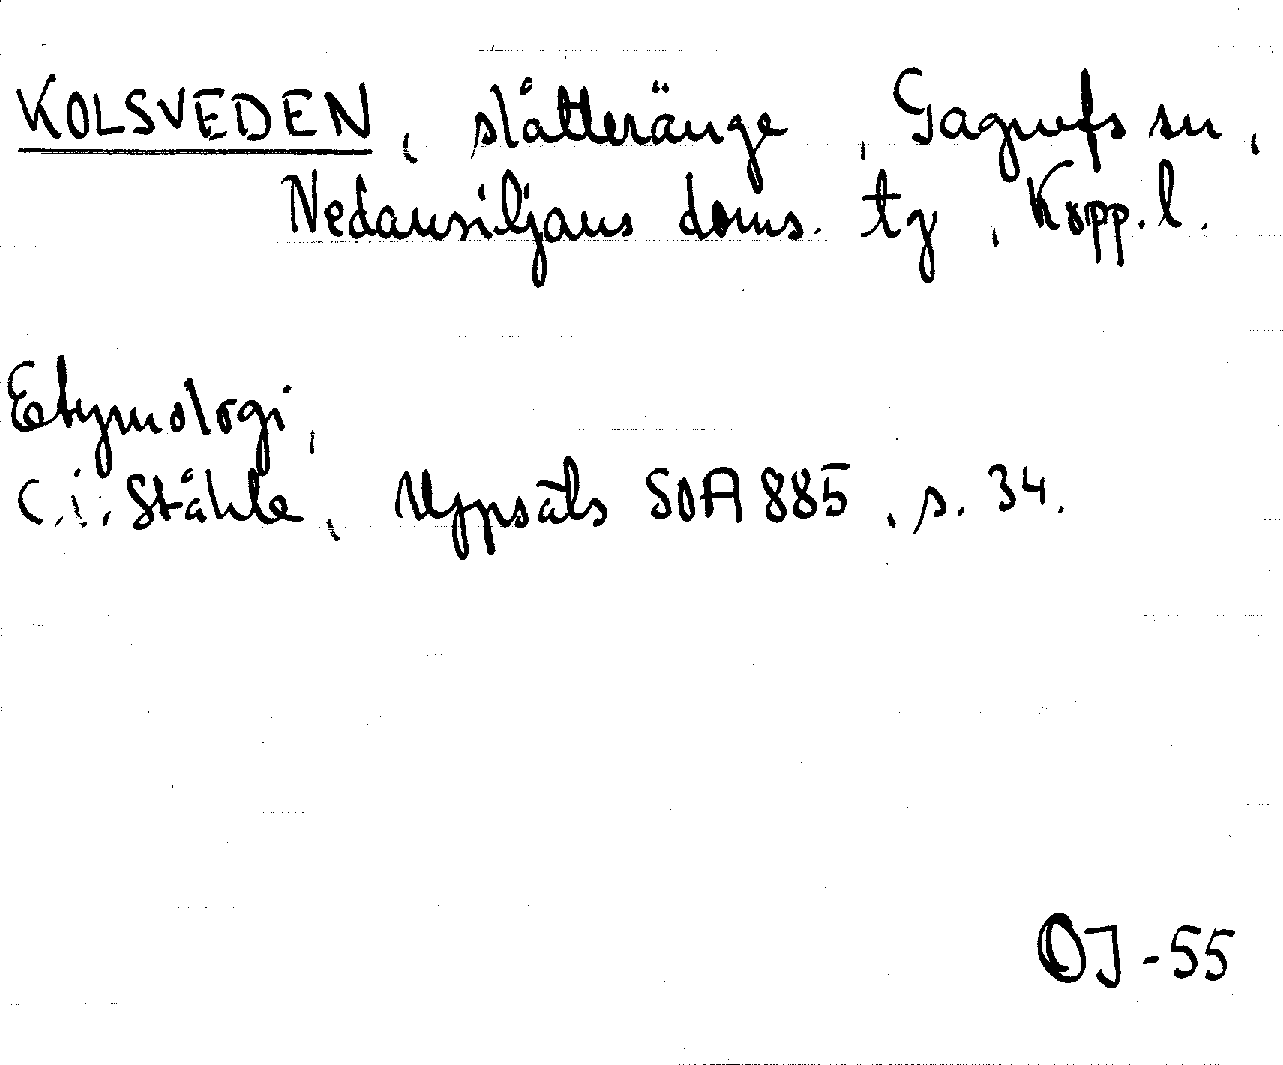 KOLSVEDEN, slåtteränge, Gagnefs sn,
Nedansiljans doms. tg, Kopp. l.
Etymologi,
C. I. Ståhle, Uppsats SOA 885, s. 34.
OJ-55